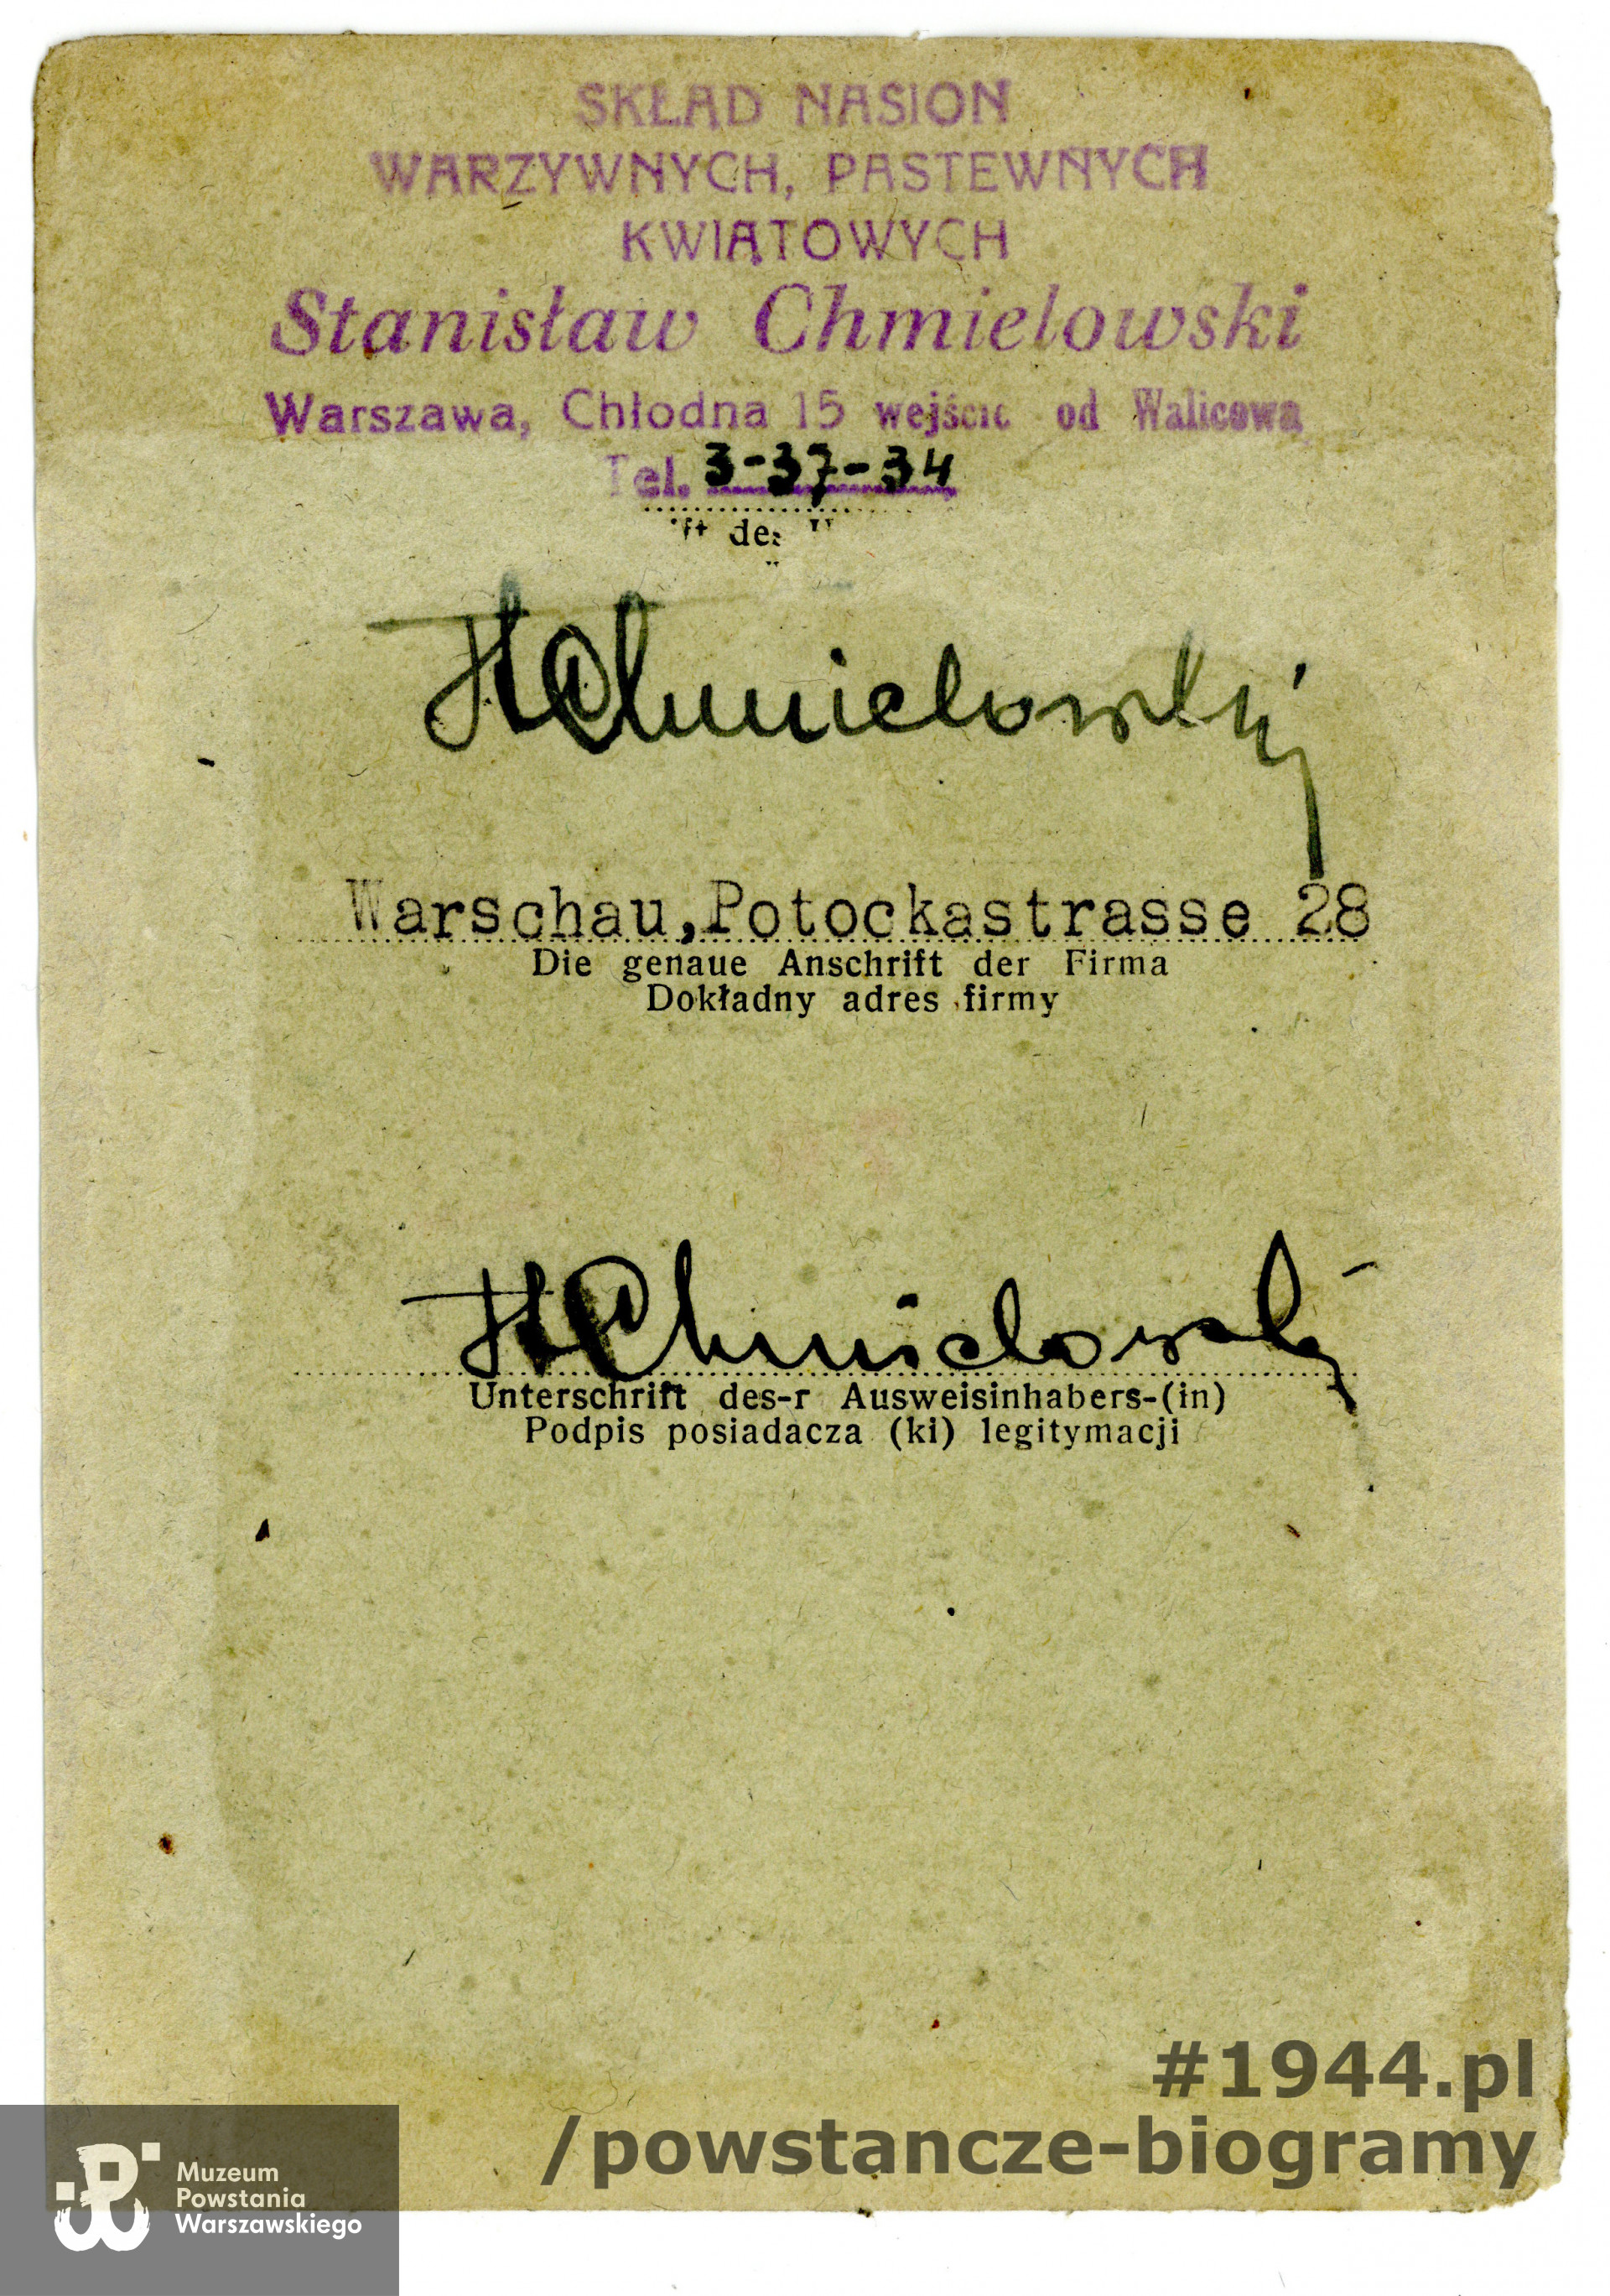 SKŁAD NASION
WARZYWNYCH, PASTEWNYCH
KWIATOWYCH
Stanisław Chmielowski
Warszawa, Chłodna 15 wejście od Walicowa
Tel. 3-37-34
des
Chmielowski
Warschau, Potockastrasse 28
Die genaue Anschrift der Firma
Dokładny adres firmy
Chmielowski
Unterschrift des-r Ausweisinhabers-(in)
Podpis posiadacza (ki) legitymacji
#1944.pl
/powstancze-biogramy
Muzeum
Powstania
Warszawskiego